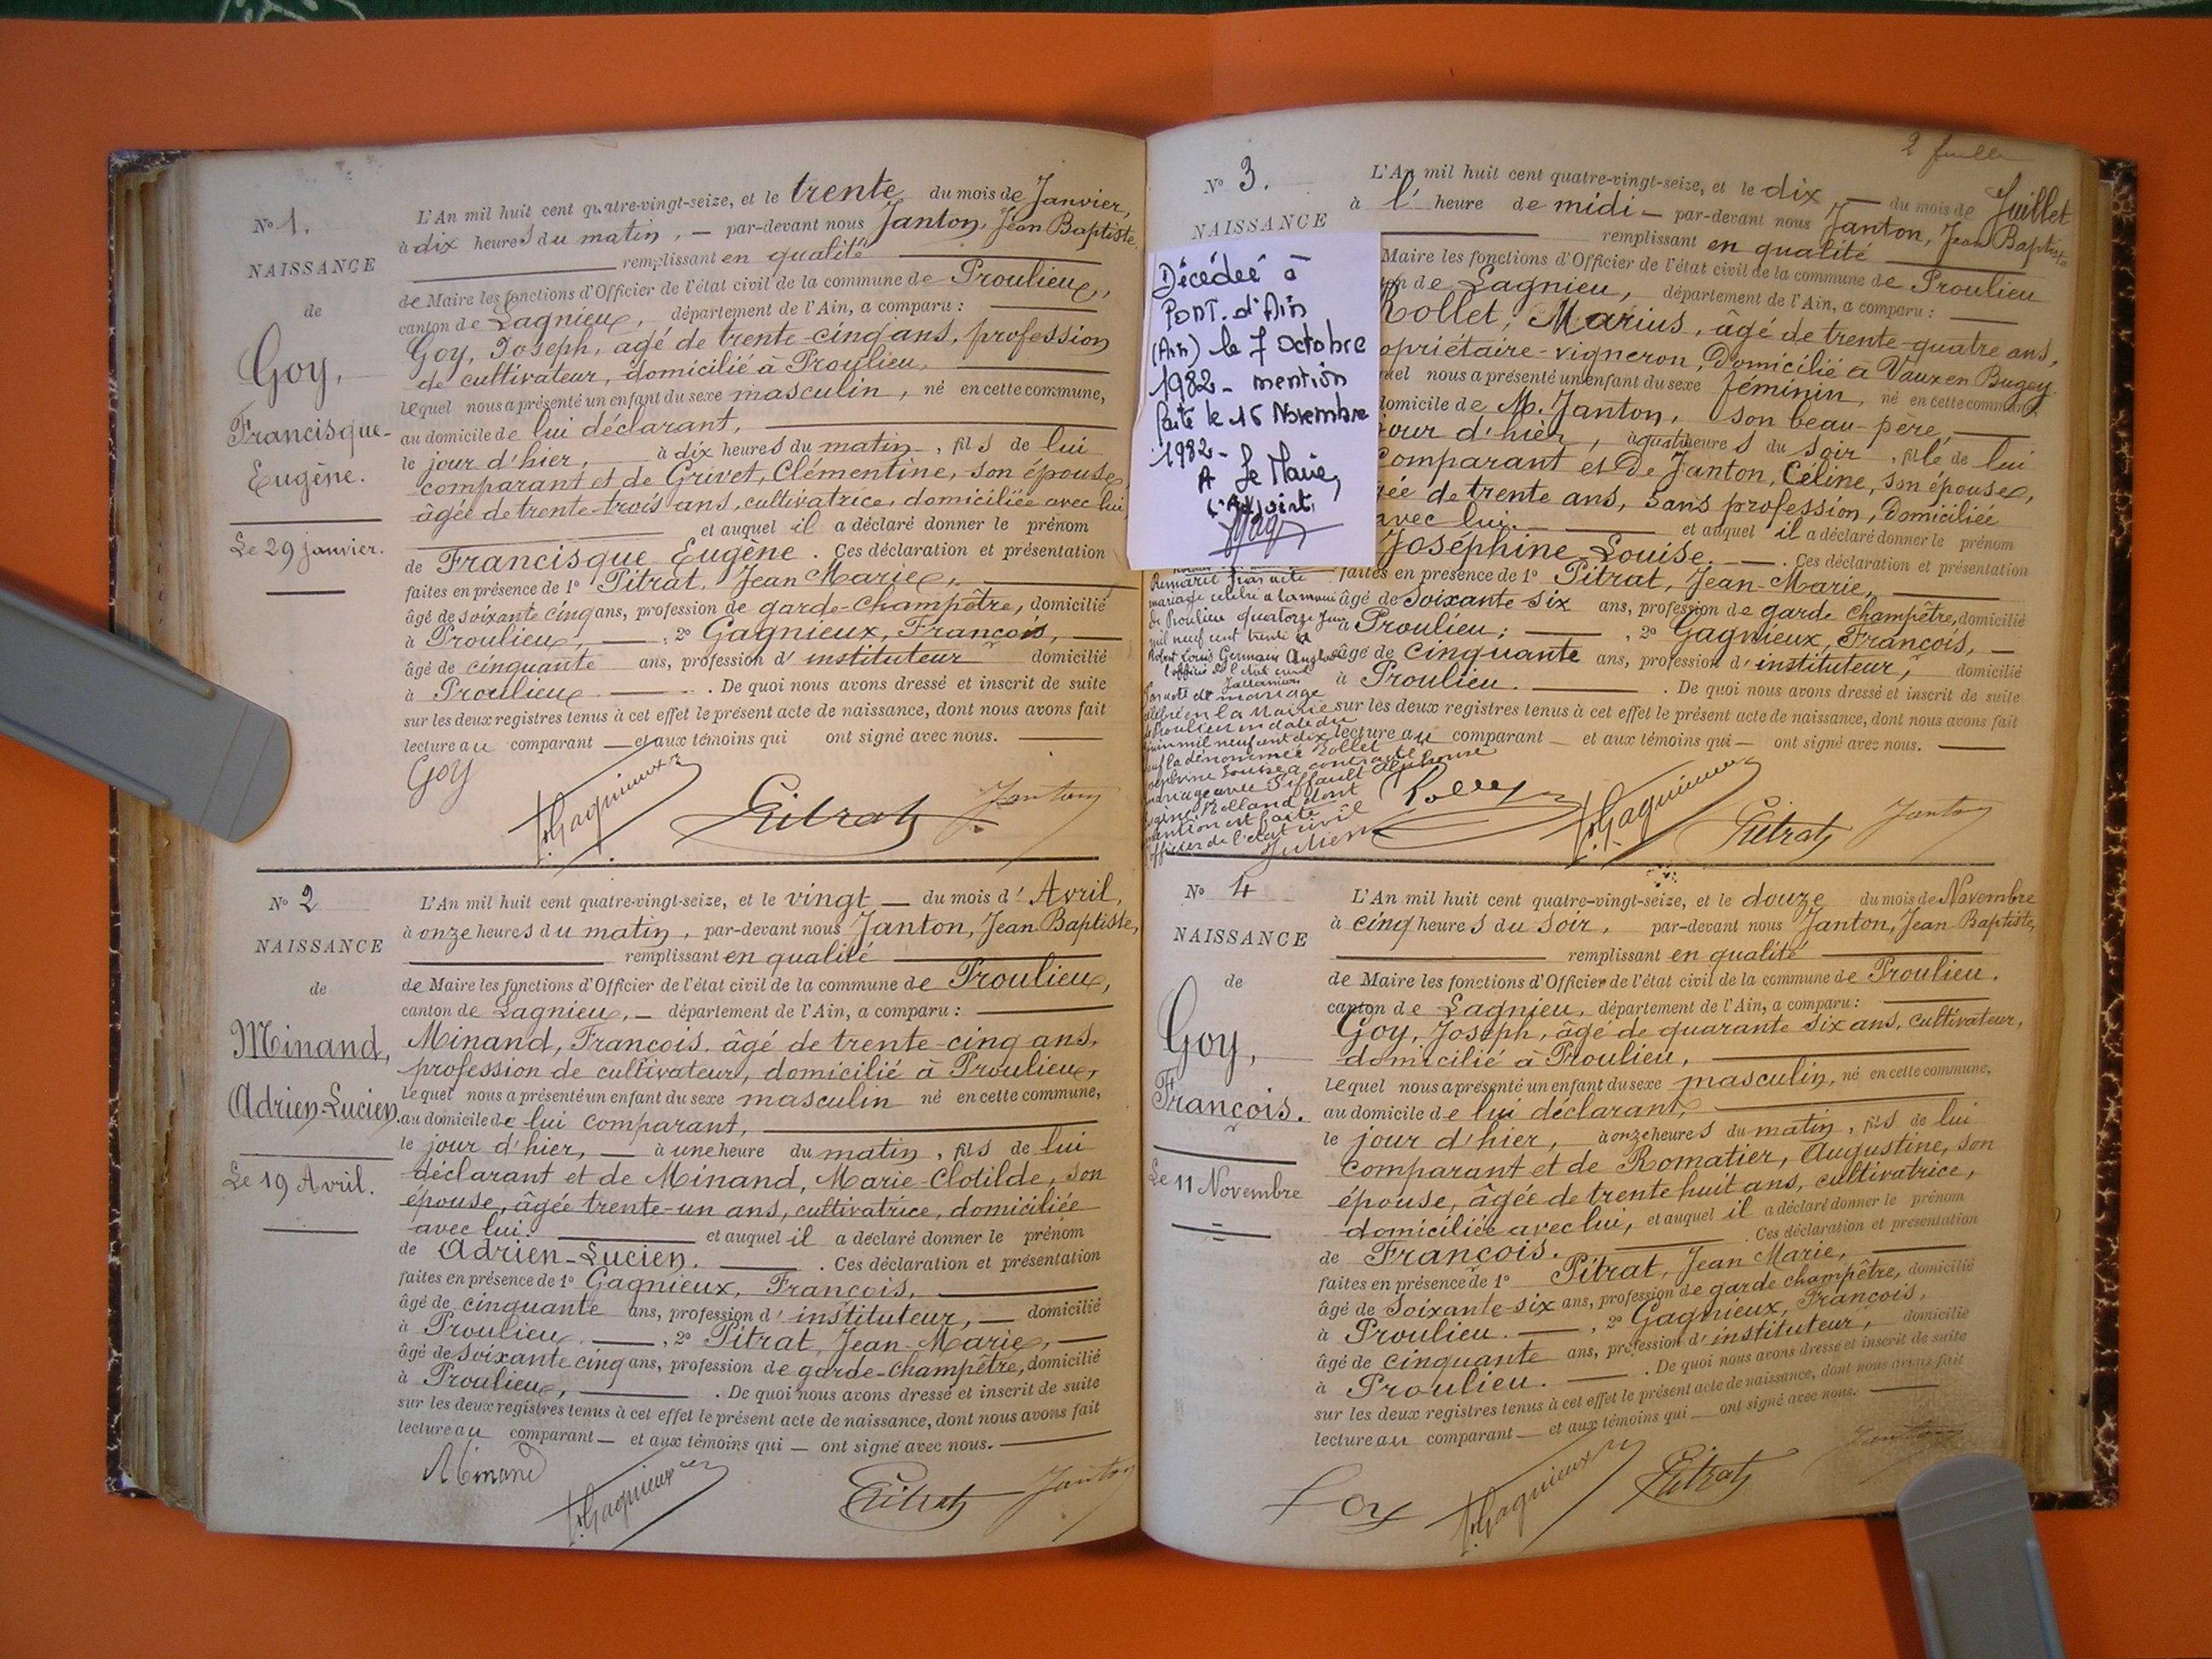 No 1.
NAISSANCE
de
Goy,
Francisque-
Eugène.
Le 29 janvier.
L'An mil huit cent quatre-vingt-seize, et le trente du mois de Janvier,
à dix heures du matin, — par-devant nous Janton, Jean Baptiste,
remplissant en qualité
de Maire les fonctions d'Officier de l'état civil de la commune de Proulieu,
canton de Lagnieu, département de l'Ain, a comparu :
Goy, Joseph, âgé de trente-cinq ans, profession
de cultivateur, domicilié à Proulieu,
lequel nous a présenté un enfant du sexe masculin, né en cette commune,
au domicile de lui déclarant,
le jour d'hier, à dix heures du matin, fils de lui
comparant et de Grivet, Clémentine, son épouse,
âgée de trente-trois ans, cultivatrice, domiciliée avec lui,
et auquel il a déclaré donner le prénom
de Francisque Eugène. Ces déclaration et présentation
faites en présence de 1° Pitrat, Jean Marie,
âgé de soixante cinq ans, profession de garde-champêtre, domicilié
à Proulieu, — , 2° Gagnieux, François,
âgé de cinquante ans, profession d'instituteur domicilié
à Proulieu. — . De quoi nous avons dressé et inscrit de suite
sur les deux registres tenus à cet effet le présent acte de naissance, dont nous avons fait
lecture au comparant — et aux témoins qui ont signé avec nous.
Goy
F. Gagnieux
Pitrat
Janton
No 2
NAISSANCE
de
Minand,
Adrien-Lucien.
Le 19 Avril.
L'An mil huit cent quatre-vingt-seize, et le vingt — du mois d'Avril,
à onze heures du matin, par-devant nous Janton, Jean Baptiste,
remplissant en qualité
de Maire les fonctions d'Officier de l'état civil de la commune de Proulieu,
canton de Lagnieu, — département de l'Ain, a comparu :
Minand, François, âgé de trente-cinq ans,
profession de cultivateur, domicilié à Proulieu,
lequel nous a présenté un enfant du sexe masculin né en cette commune,
au domicile de lui comparant,
le jour d'hier, — à une heure du matin, fils de lui
déclarant et de Minand, Marie-Clotilde, son
épouse, âgée trente-un ans, cultivatrice, domiciliée
avec lui. et auquel il a déclaré donner le prénom
de Adrien-Lucien. — . Ces déclaration et présentation
faites en présence de 1° Gagnieux, François,
âgé de cinquante ans, profession d'instituteur, — domicilié
à Proulieu. — , 2° Pitrat, Jean-Marie, —
âgé de soixante cinq ans, profession de garde-champêtre, domicilié
à Proulieu, — . De quoi nous avons dressé et inscrit de suite
sur les deux registres tenus à cet effet le présent acte de naissance, dont nous avons fait
lecture au comparant — et aux témoins qui — ont signé avec nous.
Minand
F. Gagnieux
Pitrat
Janton
2
No 3.
NAISSANCE
Décédée à
PONT. d'Ain
(Ain) le 7 Octobre
1982 - mention
faite le 15 Novembre
1982 -
Le Maire,
L'Adjoint
L'An mil huit cent quatre-vingt-seize, et le dix — du mois de Juillet
à l' heure de midi — par-devant nous Janton, Jean Baptiste
remplissant en qualité
Maire les fonctions d'Officier de l'état civil de la commune de Proulieu
de Lagnieu, département de l'Ain, a comparu :
Rollet, Marius, âgé de trente-quatre ans,
opriétaire-vigneron, domicilié à Vaux en Bugey
quel nous a présenté un enfant du sexe féminin, né en cette commune,
domicile de M. Janton, son beau-père,
jour d'hier, à quatre heures du soir, fille de lui
comparant et de Janton, Céline, son épouse,
gée de trente ans, sans profession, domiciliée
avec lui. — et auquel il a déclaré donner le prénom
Joséphine Louise. — . Ces déclaration et présentation
faites en présence de 1° Pitrat, Jean-Marie,
âgé de soixante six ans, profession de garde champêtre, domicilié
à Proulieu ; — , 2° Gagnieux, François, —
âgé de cinquante ans, profession d'instituteur, domicilié
à Proulieu. — . De quoi nous avons dressé et inscrit de suite
sur les deux registres tenus à cet effet le présent acte de naissance, dont nous avons fait
lecture au comparant — et aux témoins qui — ont signé avec nous.
Remarié par acte
mariage célébré à la mairie
de Proulieu quatorze
mil neuf cent trente
Robert Louis Germain
L'officier de l'état civil
mariage
en la Mairie
Proulieu en date du
mil neuf cent dix
la dénommée Rollet
Joséphine Louise a contracté
mariage avec Alphonse
Rolland dont
mention est faite
officier de l'état civil
Julien
Rollet
F. Gagnieux
Pitrat
Janton
No 4
NAISSANCE
de
Goy,
François.
Le 11 Novembre
L'An mil huit cent quatre-vingt-seize, et le douze du mois de Novembre
à cinq heures du soir, par-devant nous Janton, Jean-Baptiste,
remplissant en qualité
de Maire les fonctions d'Officier de l'état civil de la commune de Proulieu.
canton de Lagnieu, département de l'Ain, a comparu :
Goy, Joseph, âgé de quarante six ans, cultivateur,
domicilié à Proulieu,
lequel nous a présenté un enfant du sexe masculin, né en cette commune,
au domicile de lui déclarant,
le jour d'hier, à onze heures du matin, fils de lui
comparant et de Romatier, Augustine, son
épouse, âgée de trente huit ans, cultivatrice,
domiciliée avec lui, et auquel il a déclaré donner le prénom
de François. — . Ces déclaration et présentation
faites en présence de 1° Pitrat, Jean Marie,
âgé de soixante-six ans, profession de garde champêtre, domicilié
à Proulieu. — , 2° Gagnieux, François,
âgé de cinquante ans, profession d'instituteur, domicilié
à Proulieu. — . De quoi nous avons dressé et inscrit de suite
sur les deux registres tenus à cet effet le présent acte de naissance, dont nous avons fait
lecture au comparant — et aux témoins qui — ont signé avec nous.
Goy
F. Gagnieux
Pitrat
Janton